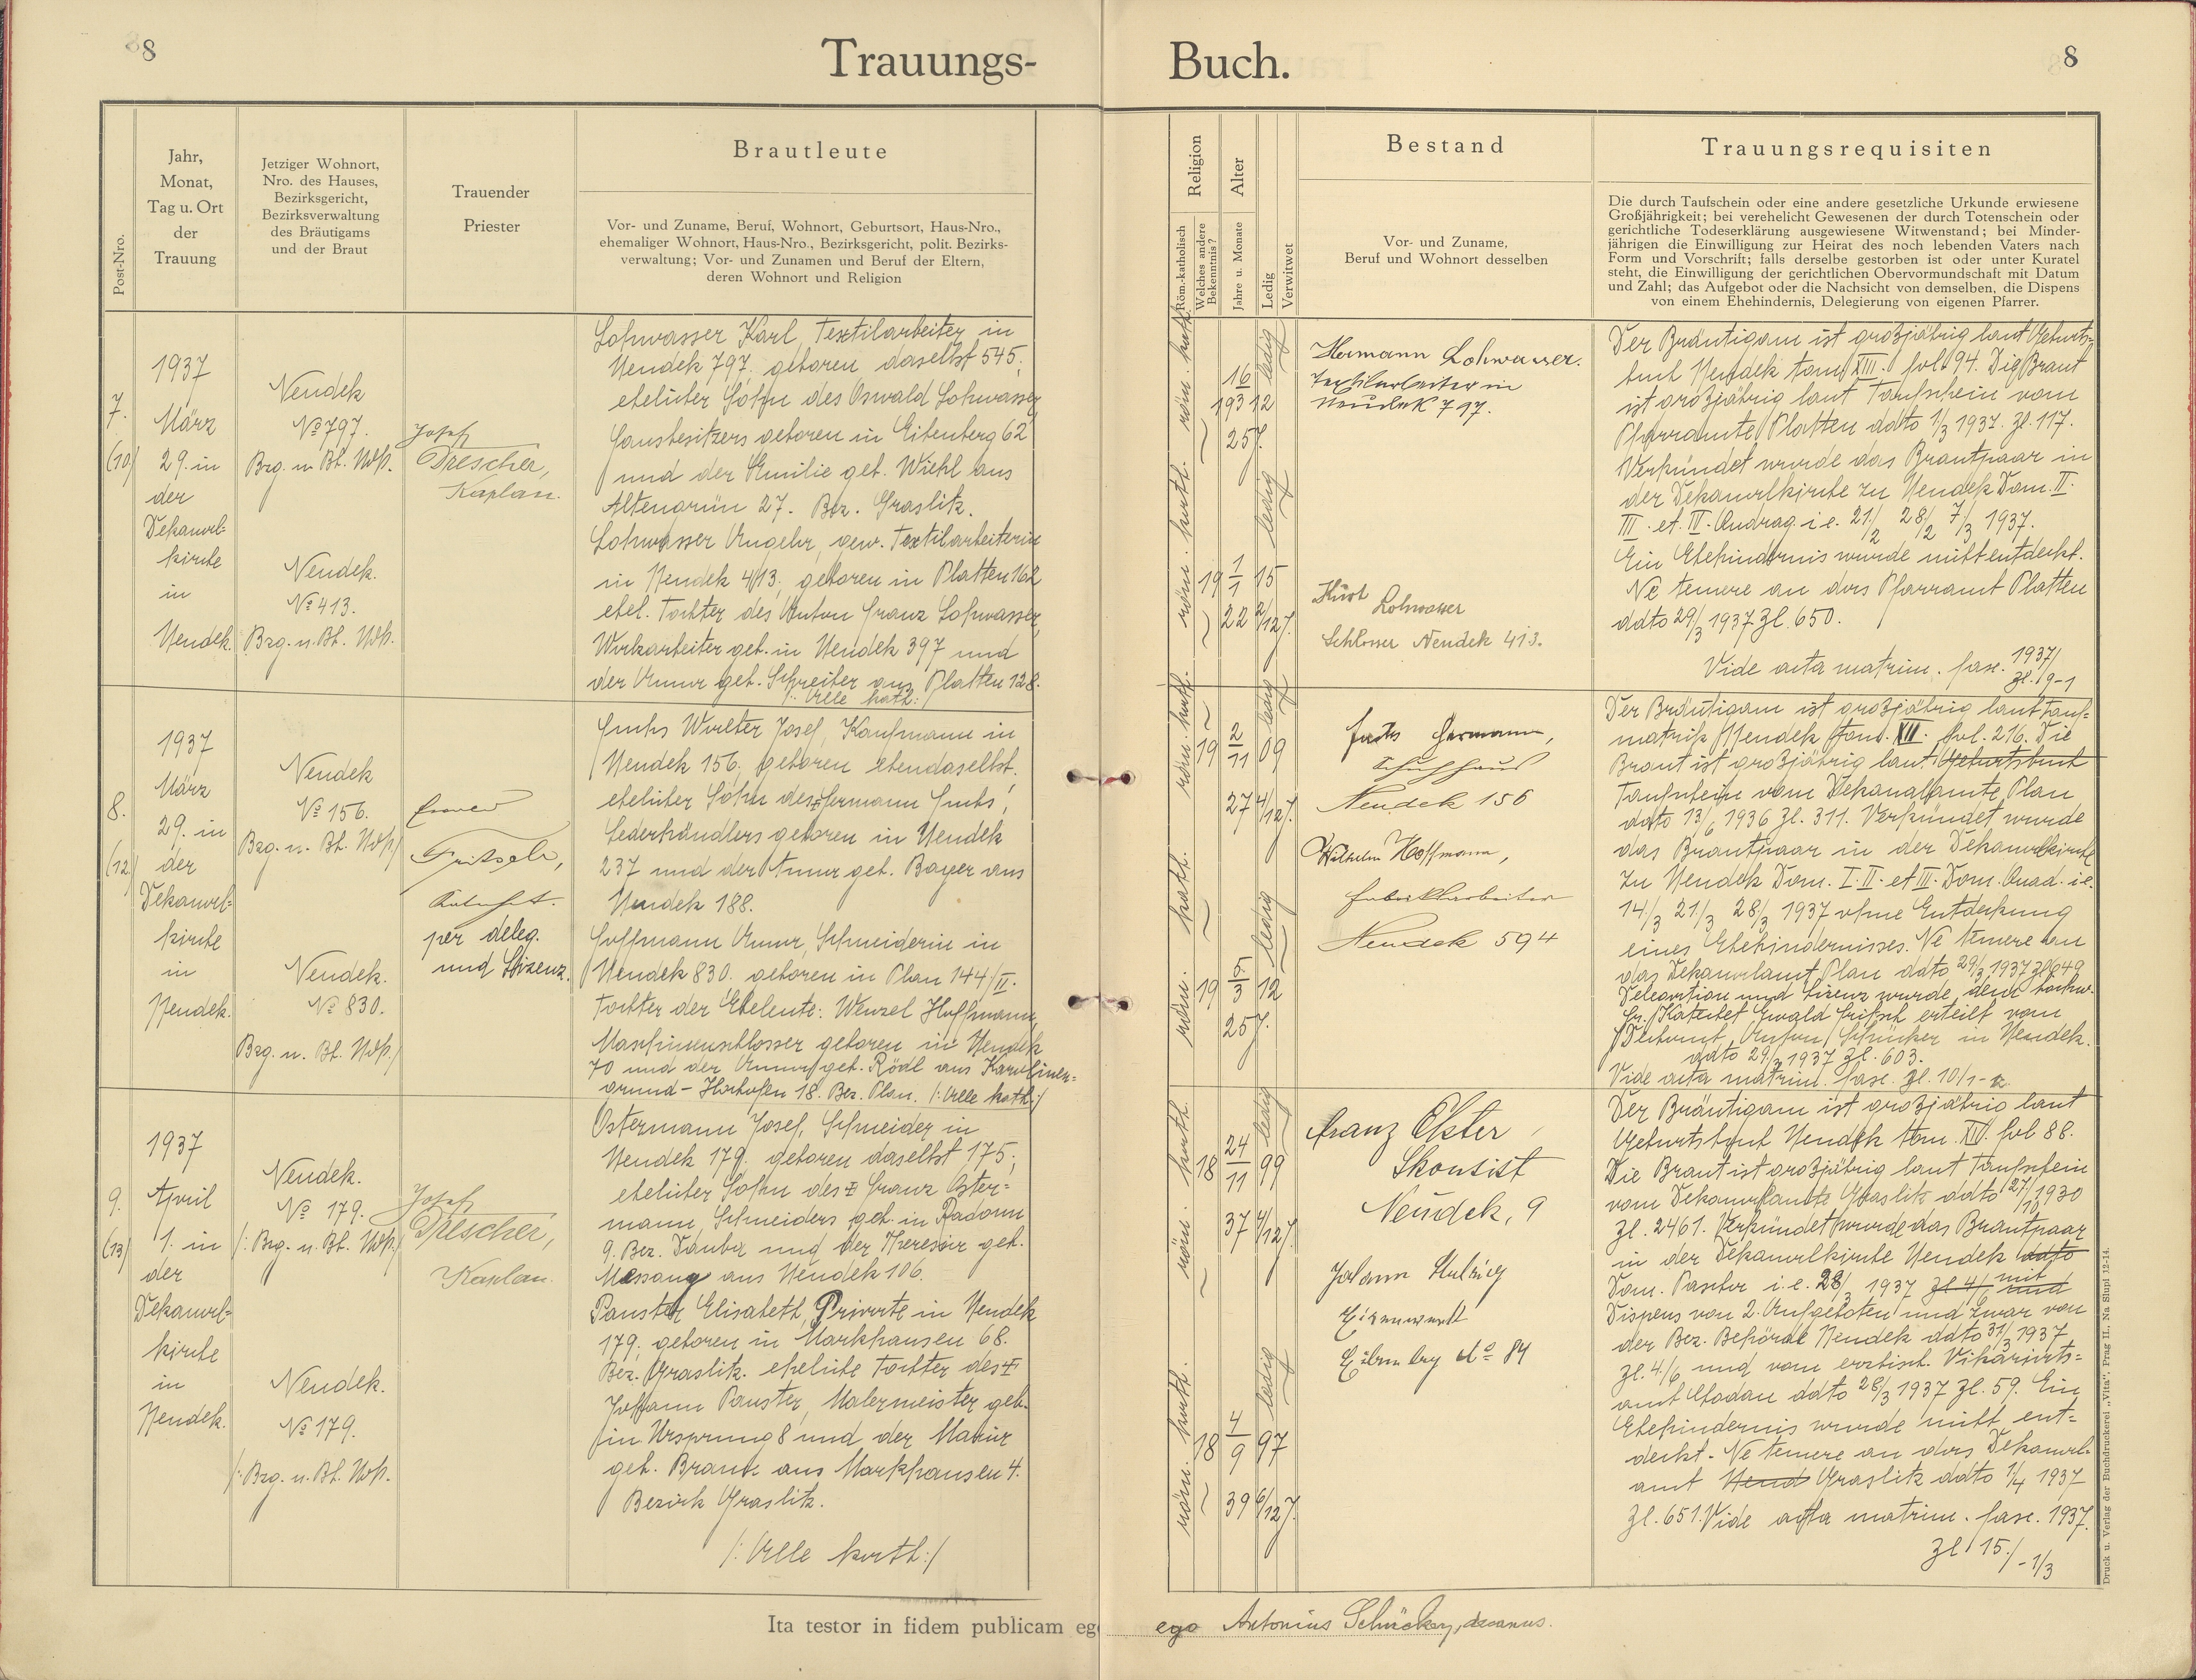 8
Trauungs-
Post-Nro.
Jahr,
Monat,
Tag u. Ort
der
Trauung
Jetziger Wohnort,
Nro. des Hauses,
Bezirksgericht,
Bezirksverwaltung
des Bräutigams
und der Braut
Trauender
Priester
Brautleute
Vor- und Zuname, Beruf, Wohnort, Geburtsort, Haus-Nro.,
ehemaliger Wohnort, Haus-Nro., Bezirksgericht, polit. Bezirks-
verwaltung; Vor- und Zunamen und Beruf der Eltern,
deren Wohnort und Religion
7.
(10)
1937
März
29. in
der
Dekanal-
kirche
in
Neudek.
Neudek
No 797.
Bzg. u. Bh. Ndk.
Neudek.
No 413.
Bzg. u. Bh. Ndk.
Josef
Drescher,
Kaplan.
Lohwasser Karl, Textilarbeiter in
Neudek 797. geboren daselbst 545;
ehelicher Sohn des Oswald Lohwasser
Hausbesitzers geboren in Eibenberg 62
und der Emilie geb. Wiehl aus
Altengrün 27. Bez. Graslitz.
Lohwasser Angela, gew. Textilarbeiterin
in Neudek 413; geboren in Platten 162
ehel. Tochter des Anton Franz Lohwasser,
Werkarbeiter geb. in Neudek 397 und
der Anna geb. Schreiter aus Platten 128.
/: Alle kath:/
8.
(12)
1937
März
29. in
der
Dekanal-
kirche
in
Neudek.
Neudek
No 156.
Bzg. u. Bh. Ndk/
Neudek.
No 830.
Bzg. u. Bh. Ndk./
per deleg.
und Lizenz.
Fuchs Walter Josef, Kaufmann in
Neudek 156; geboren ebendaselbst.
ehelicher Sohn des Hermann Fuchs,
Lederhändlers geboren in Neudek
237 und der Anna geb. Bayer aus
Neudek 188.
Hoffmann Anna, Schneiderin in
Neudek 830. geboren in Plan 144/II.
Tochter der Eheleute: Wenzel Hoffmann,
Maschinenschlosser geboren in Neudek
70 und der Anna geb. Rödl aus Karoliner-
grund - Hinterhofen 18. Bez. Plan. /: Alle kath:/
9.
(13)
1937
April
1. in
der
Dekanal-
kirche
in
Neudek.
Neudek.
No 179.
/: Bzg. u. Bh. Ndk./
Neudek.
No 179.
/: Bzg. u. Bh. Ndk.
Josef
Drescher,
Kaplan.
Ostermann Josef, Schneider in
Neudek 179. geboren daselbst 175;
ehelicher Sohn des Franz Oster-
mann, Schneiders geb. in Radonn
9. Bez. Dauba und der Theresia geb.
Massang aus Neudek 106.
Panster Elisabeth, Private in Neudek
179; geboren in Markhausen 68.
Bez. Graslitz. eheliche Tochter des
Johann Panster, Malermeister geb.
in Ursprung 8 und der Maria
geb. Brand aus Markhausen 4.
Bezirk Graslitz.
/: Alle kath:/
Ita testor in fidem publicam eg
Buch.
8
Religion
Röm.-katholisch
Welches andere Bekenntnis?
Alter
Jahre u. Monate
Ledig
Verwitwet
Bestand
Vor- und Zuname,
Beruf und Wohnort desselben
Trauungsrequisiten
Die durch Taufschein oder eine andere gesetzliche Urkunde erwiesene
Großjährigkeit; bei verehelicht Gewesenen der durch Totenschein oder
gerichtliche Todeserklärung ausgewiesene Witwenstand; bei Minder-
jährigen die Einwilligung zur Heirat des noch lebenden Vaters nach
Form und Vorschrift; falls derselbe gestorben ist oder unter Kuratel
steht, die Einwilligung der gerichtlichen Obervormundschaft mit Datum
und Zahl; das Aufgebot oder die Nachsicht von demselben, die Dispens
von einem Ehehindernis, Delegierung von eigenen Pfarrer.
röm. kath.
16
1912
25 J.
ledig
röm. kath.
19 1/1 15
22 2/12 J.
ledig
Hermann Lohwasser.
Textilarbeiter in
Neudek 797.
Kurt
Lohwasser
Schlosser Neudek 413.
Der Bräutigam ist großjährig laut Geburts-
buch Neudek tom XIII. fol 94. Die Braut
ist großjährig laut Taufschein vom
Pfarramte Platten ddto 1/3 1937. Zl. 117.
Verkündet wurde das Brautpaar in
der Dekanalkirche zu Neudek Dom. II.
III. et. IV. Quadrag. i. e. 21/2 28/2 7/3 1937.
Ein Ehehindernis wurde nicht entdeckt.
Ne temere an das Pfarramt Platten
ddto 29/3 1937 Zl. 650.
Vide acta matrim. fasc. 1937/
Zl. 9-1
röm. kath.
19 2/11 09
27 4/12 J.
ledig
röm. kath.
19 5/3 12
25 J.
ledig
Fuchs Hermann,
Neudek 156
Wilhelm Hoffmann,
Fabrikarbeiter
Neudek 594
Der Bräutigam ist großjährig laut Tauf-
matrik Neudek tom. XII. fol. 216. Die
Braut ist großjährig laut Geburtsbuch
Taufschein vom Dekanalamte Plan
ddto 13/6 1936 Zl. 311. Verkündet wurde
das Brautpaar in der Dekanalkirche
zu Neudek Dom. I. II. et III. Dom. Quad. i. e.
14/3 21/3 28/3 1937 ohne Entdeckung
eines Ehehindernisses. Ne temere an
das Dekanalamt Plan ddto 29/3 1937 Zl 649
Delegation und Lizenz wurde dem hochw.
Hr. Katechet Ewald Fritsch erteilt vom
Dechant Anton Schücker in Neudek.
ddto 29/3 1937 Zl. 603.
Vide acta matrim. fasc. Zl. 10/1-
röm. kath.
18 24/11 99
37 4/12 J.
ledig
röm. kath.
18 4/9 97
39 6/12 J.
ledig
Franz Elster,
Skontist
Neudek, 9
Johann
Eisenwerk
No 84
Der Bräutigam ist großjährig laut
Geburtsbuch Neudek tom. XIV. fol 88.
Die Braut ist großjährig laut Taufschein
vom Dekanalamte Graslitz ddto 27/10 1930
Zl. 2461. Verkündet wurde das Brautpaar
in der Dekanalkirche Neudek ddto
Dom. Paschx i. e. 28/3 1937 Zl 4/6 und mit
Dispens von 2. Aufgeboten und zwar von
der Bez. Behörde Neudek ddto 31/3 1937
Zl. 4/6 und vom erzbisch. Vikariats-
amt ddto 28/3 1937 Zl. 59. Ein
Ehehindernis wurde nicht ent-
deckt. Ne temere an das Dekanal-
amt Neud Graslitz ddto 1/4 1937
Zl. 651. Vide acta matrim. fasc. 1937.
Zl 15/-1/3
ego Antonius Schücker, decanus.
Druck u. Verlag der Buchdruckerei „Vita“, Prag II., Na Slupi 12-14.